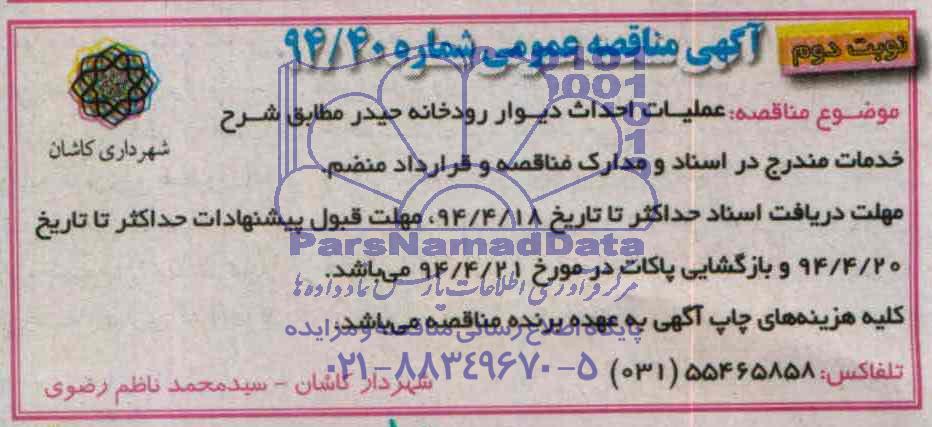 نوبت دوم
آگهی مناقصه عمومی شماره ۹۴/۴۰
شهرداری کاشان
موضوع مناقصه: عملیات احداث دیوار رودخانه حیدر مطابق شرح
خدمات مندرج در اسناد و مدارک مناقصه و قرارداد منضم.
مهلت دریافت اسناد حداکثر تا تاریخ ۹۴/۴/۱۸، مهلت قبول پیشنهادات حداکثر تا تاریخ
۹۴/۴/۲۰ و بازگشایی پاکات در مورخ ۹۴/۴/۲۱ می‌باشد.
کلیه هزینه‌های چاپ آگهی به عهده برنده مناقصه می‌باشد.
تلفاکس: ۵۵۴۶۵۸۵۸ (۰۳۱)
شهردار کاشان - سیدمحمد ناظم رضوی
ParsNamadData
مرکز فرآوری اطلاعات پارس نماد داده ها
پایگاه اطلاع رسانی مناقصه و مزایده
۰۲۱-۸۸۳۴۹۶۷۰-۵